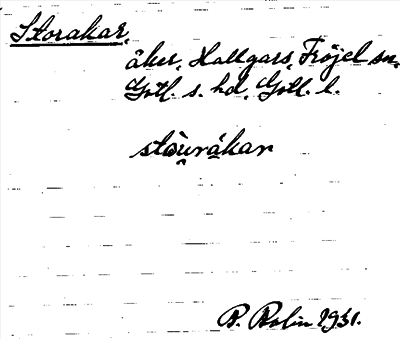 Storakar,
åker, Hallgars, Fröjel sn,
Gotl. s. hd, Gotl. l.
stou̯rákar
B. Bolin 1931.